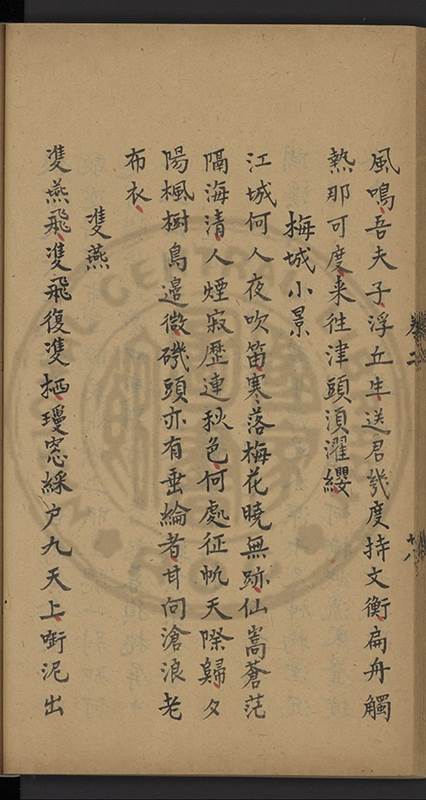 風鳴吾夫子浮丘生送君幾度持文衡扁舟觸
熱那可度来往津頭須濯纓
梅城小景
江城何人夜吹笛寒落梅花曉無跡仙嵩蒼茫
隔海清人煙寂歷連秋色何處征帆天際歸夕
陽楓樹鳥邉微磯頭亦有垂綸者甘向滄浪老
布衣
雙燕
雙燕飛雙飛復雙栖瓊窓綵户九天上啣泥出
卷二
十八